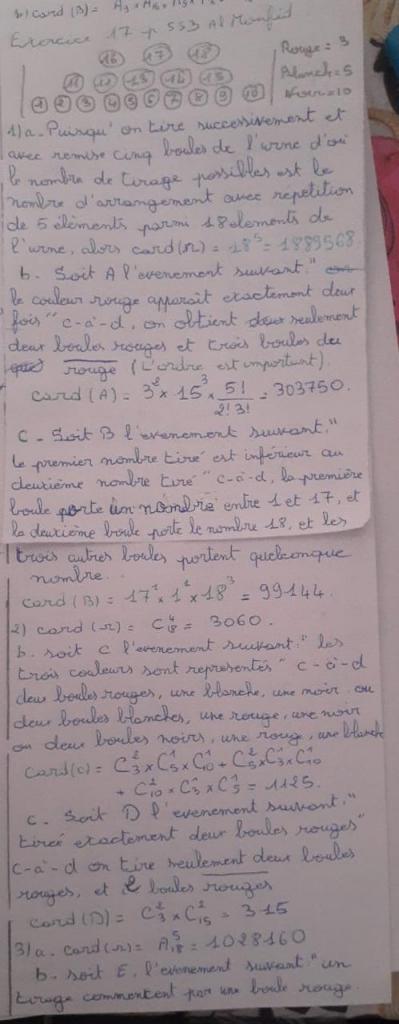 b) card (B) =
Exercice 17 p 553 Al Moufid
16 17 18
11 12 13 14 15
1 2 3 4 5 6 7 8 9 10
Rouge = 3
Blanche = 5
Noir = 10
1) a- Puisqu' on tire successivement et
avec remise cinq boules de l'urne d'où
le nombre de tirage possibles est le
nombre d'arrangement avec répétition
de 5 éléments parmi 18 elements de
l'urne, alors card(Ω) = 18⁵ = 1889568.
b. Soit A l'evenement suivant "
le couleur rouge apparait exactement deux
fois" c-a'-d, on obtient seulement
deux boules rouges et trois boules de
rouge (L'ordre est important).
card (A) = 3² × 15³ × 5!/2!3! = 303750.
C - Soit B l'evenement suivant "
le premier nombre tiré est inférieur au
deuxième nombre tiré" c-à-d, la première
boule porte un nombre entre 1 et 17, et
la deuxième boule porte le nombre 18, et les
trois autres boules portent quelconque
nombre.
card (B) = 17¹ × 1¹ × 18³ = 99144.
2) card (Ω) = C⁴₁₈ = 3060.
b. soit C l'evenement suivant " les
trois couleurs sont representés" c-à-d
deux boules rouges, une blanche, une noir ou
deux boules blanches, une rouge, une noir
ou deux boules noirs, une rouge, une blanche
card(c) = C²₃ × C¹₅ × C¹₁₀ + C²₅ × C¹₃ × C¹₁₀
+ C²₁₀ × C¹₃ × C¹₅ = 1125.
c. Soit D l'evenement suivant "
tireé exactement deux boules rouges"
c-à-d on tire seulement deux boules
rouges, et 2 boules rouges
card (D) = C²₃ × C²₁₅ = 315
3) a. card(Ω) = A⁵₁₈ = 1028160
b. soit E. l'evenement suivant " un
tirage commencent par une boule rouge.